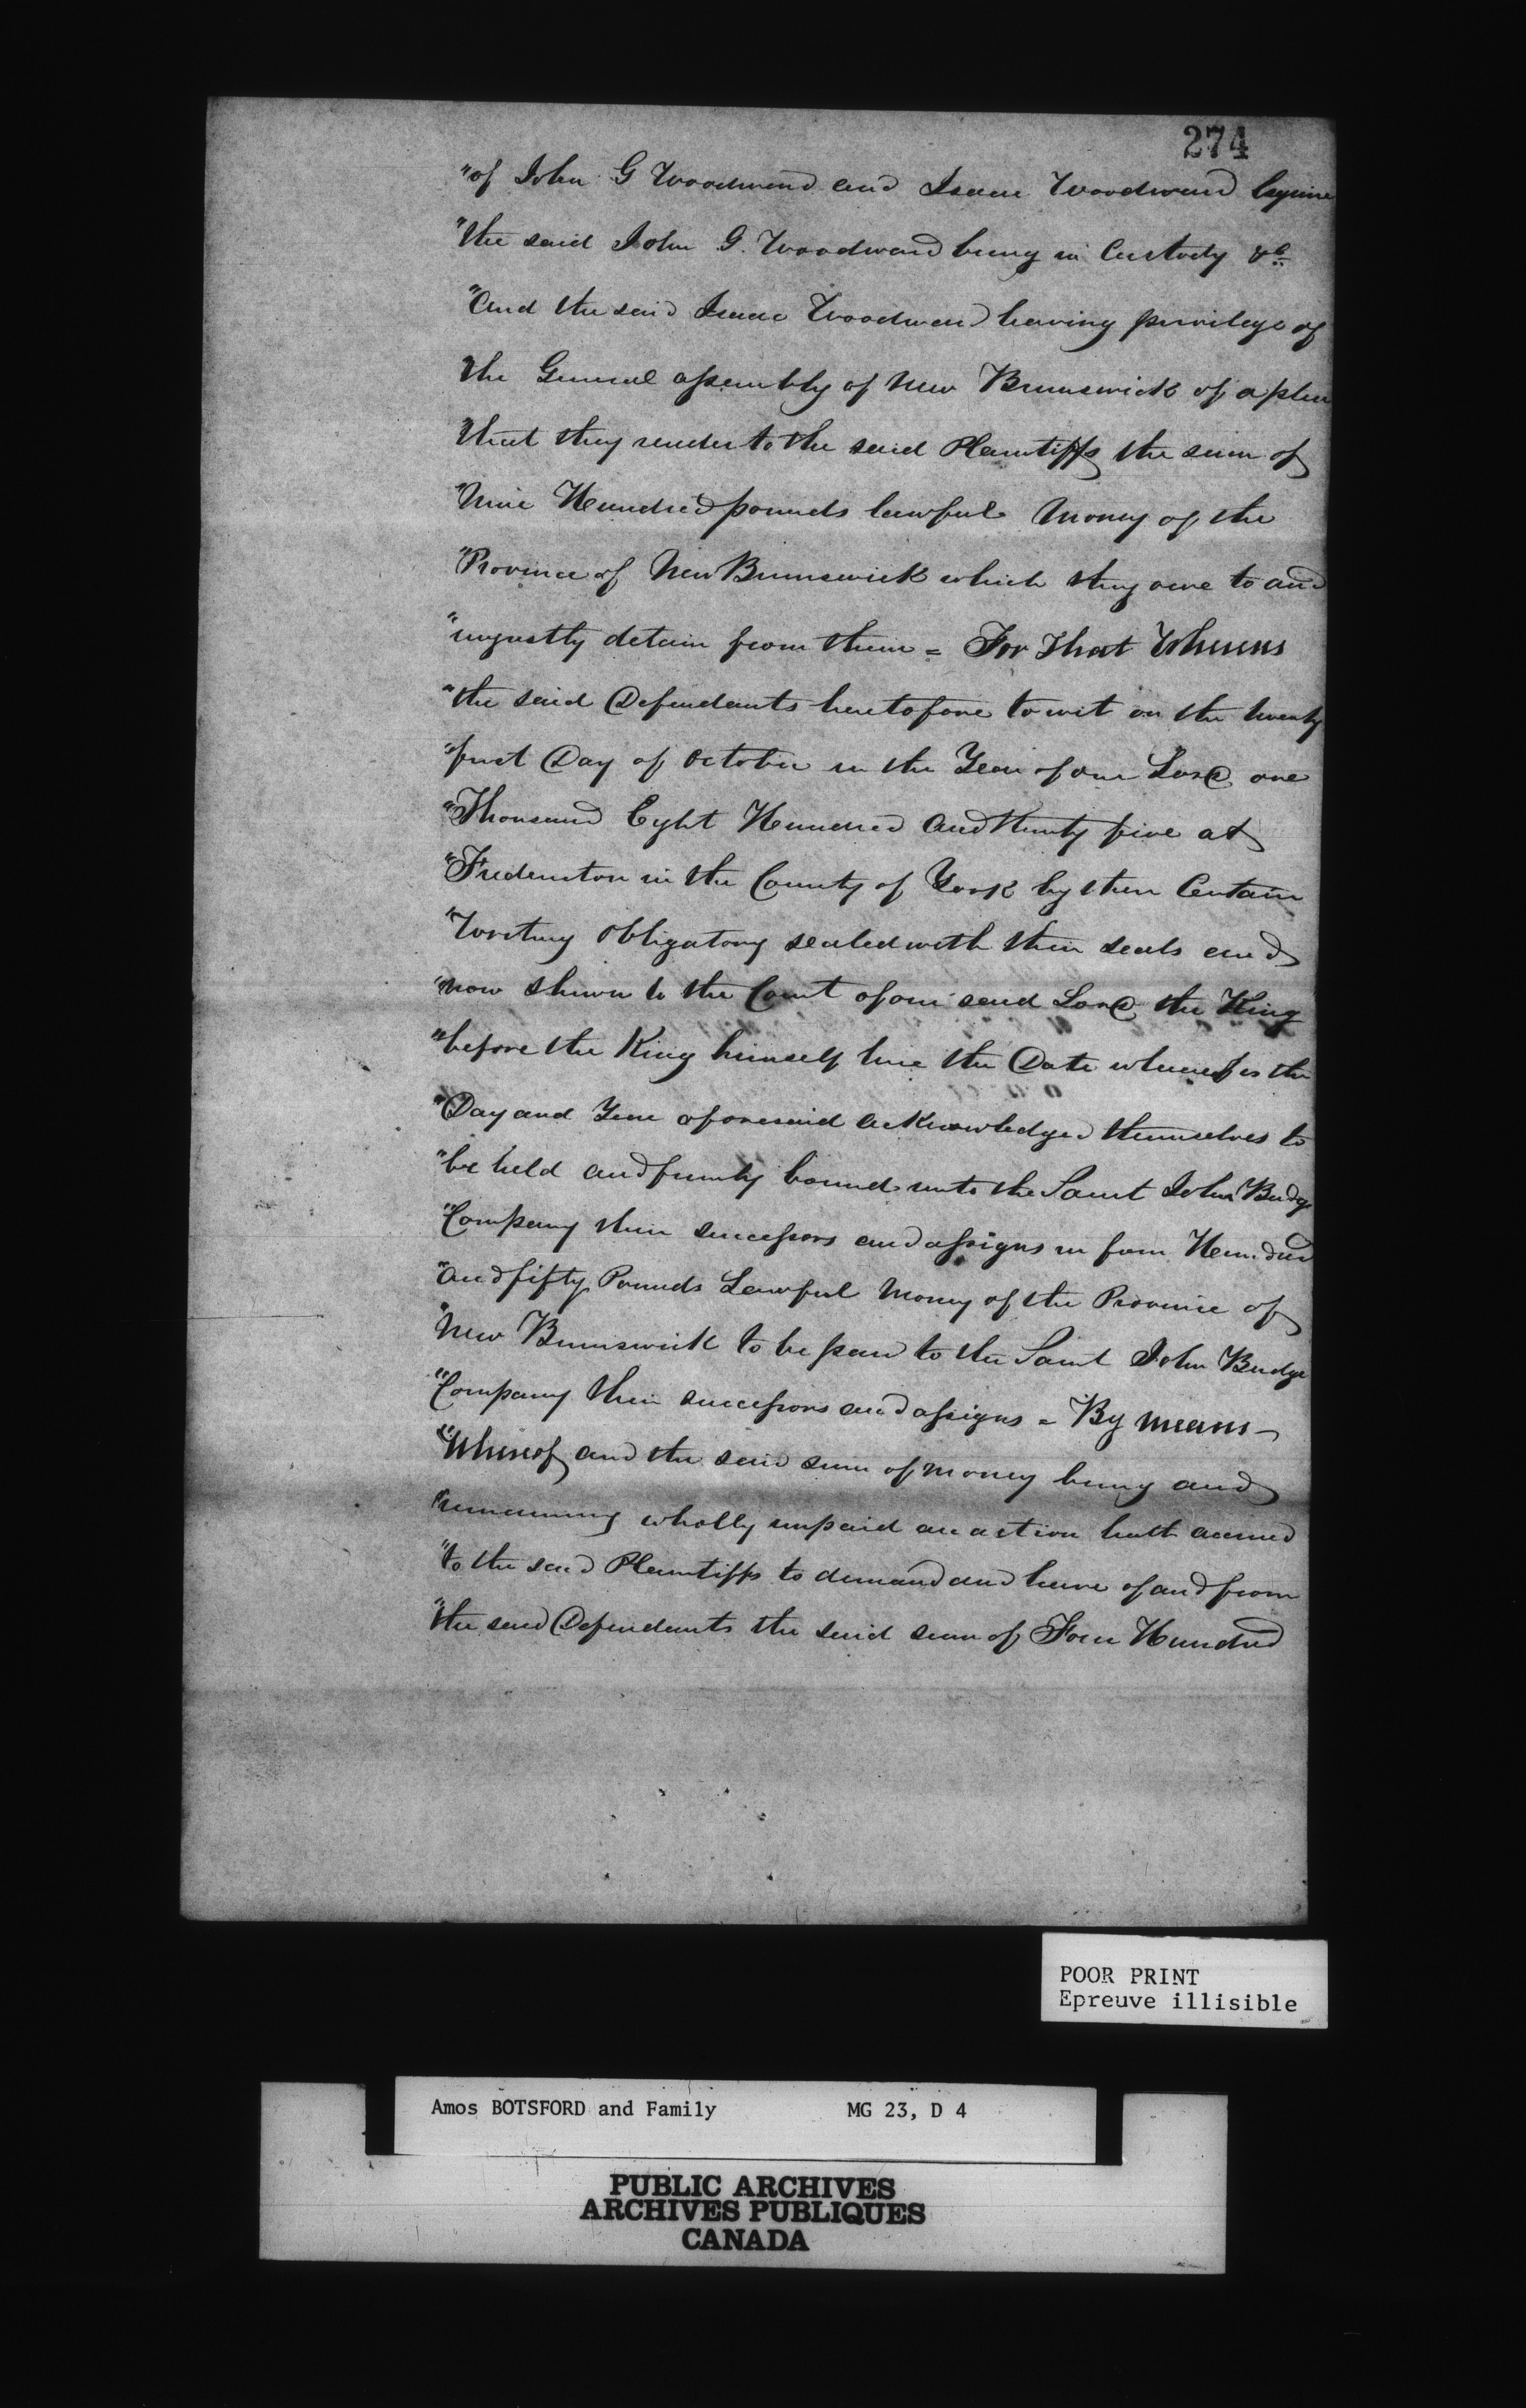 274
"of John G Woodward and Isaac Woodward Esquire
"the said John G. Woodward being in Custody &c
"And the said Isaac Woodward having privilege of
"the General assembly of New Brunswick of a plea
"that they render to the said Plaintiffs the sum of
"Nine Hundred pounds lawful Money of the
"Province of New Brunswick which they owe to and
"unjustly detain from them = For that Whereas
"the said Defendants heretofore to wit on the twenty
"first Day of October in the Year of our Lord one
"Thousand Eight Hundred and thirty five at
"Fredericton in the County of York by their Certain
"Writing Obligatory sealed with their seals and
"now shewn to the Court of our said Lord the King
"before the King himself here the Date whereof is the
"Day and Year aforesaid acknowledged themselves to
"be held and firmly bound unto the Saint John Bridge
"Company their successors and assigns in four Hundred
"and fifty Pounds Lawful Money of the Province of
"New Brunswick to be paid to the Saint John Bridge
"Company their successors and assigns = By means
"Whereof and the said sum of money being and
"remaining wholly unpaid an action hath accrued
"to the said Plaintiffs to demand and have of and from
"the said Defendants the said sum of Four Hundred
POOR PRINT
Epreuve illisible
Amos BOTSFORD and Family MG 23, D 4
PUBLIC ARCHIVES
ARCHIVES PUBLIQUES
CANADA